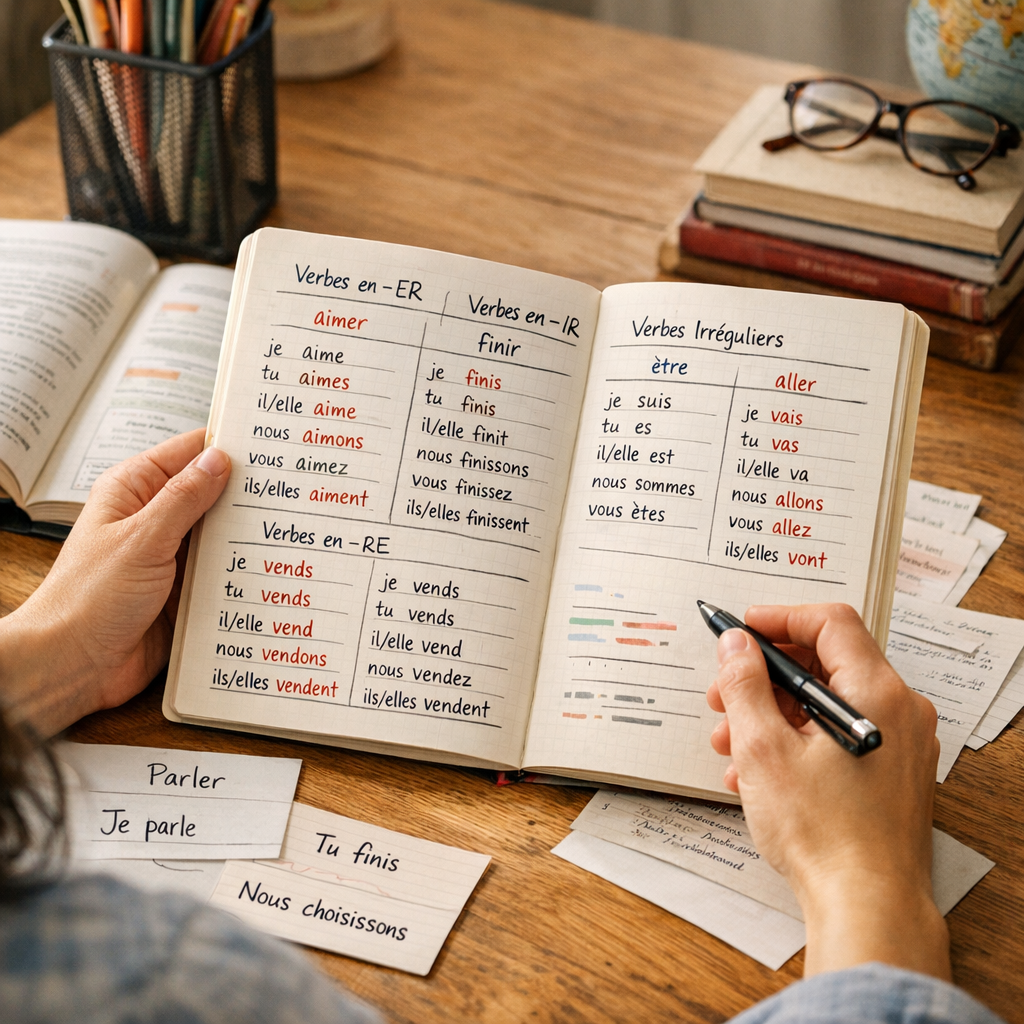 Verbes en -ER
aimer
je aime
tu aimes
il/elle aime
nous aimons
vous aimez
ils/elles aiment
Verbes en -IR
finir
je finis
tu finis
il/elle finit
nous finissons
vous finissez
ils/elles finissent
Verbes en -RE
je vends
tu vends
il/elle vend
nous vendons
ils/elles vendent
je vends
tu vends
il/elle vend
nous vendez
ils/elles vendent
Verbes Irréguliers
ètre
je suis
tu es
il/elle est
nous sommes
vous ètes
aller
je vais
tu vas
il/elle va
nous allons
vous allez
ils/elles vont
Parler
Je parle
Tu finis
Nous choisissons